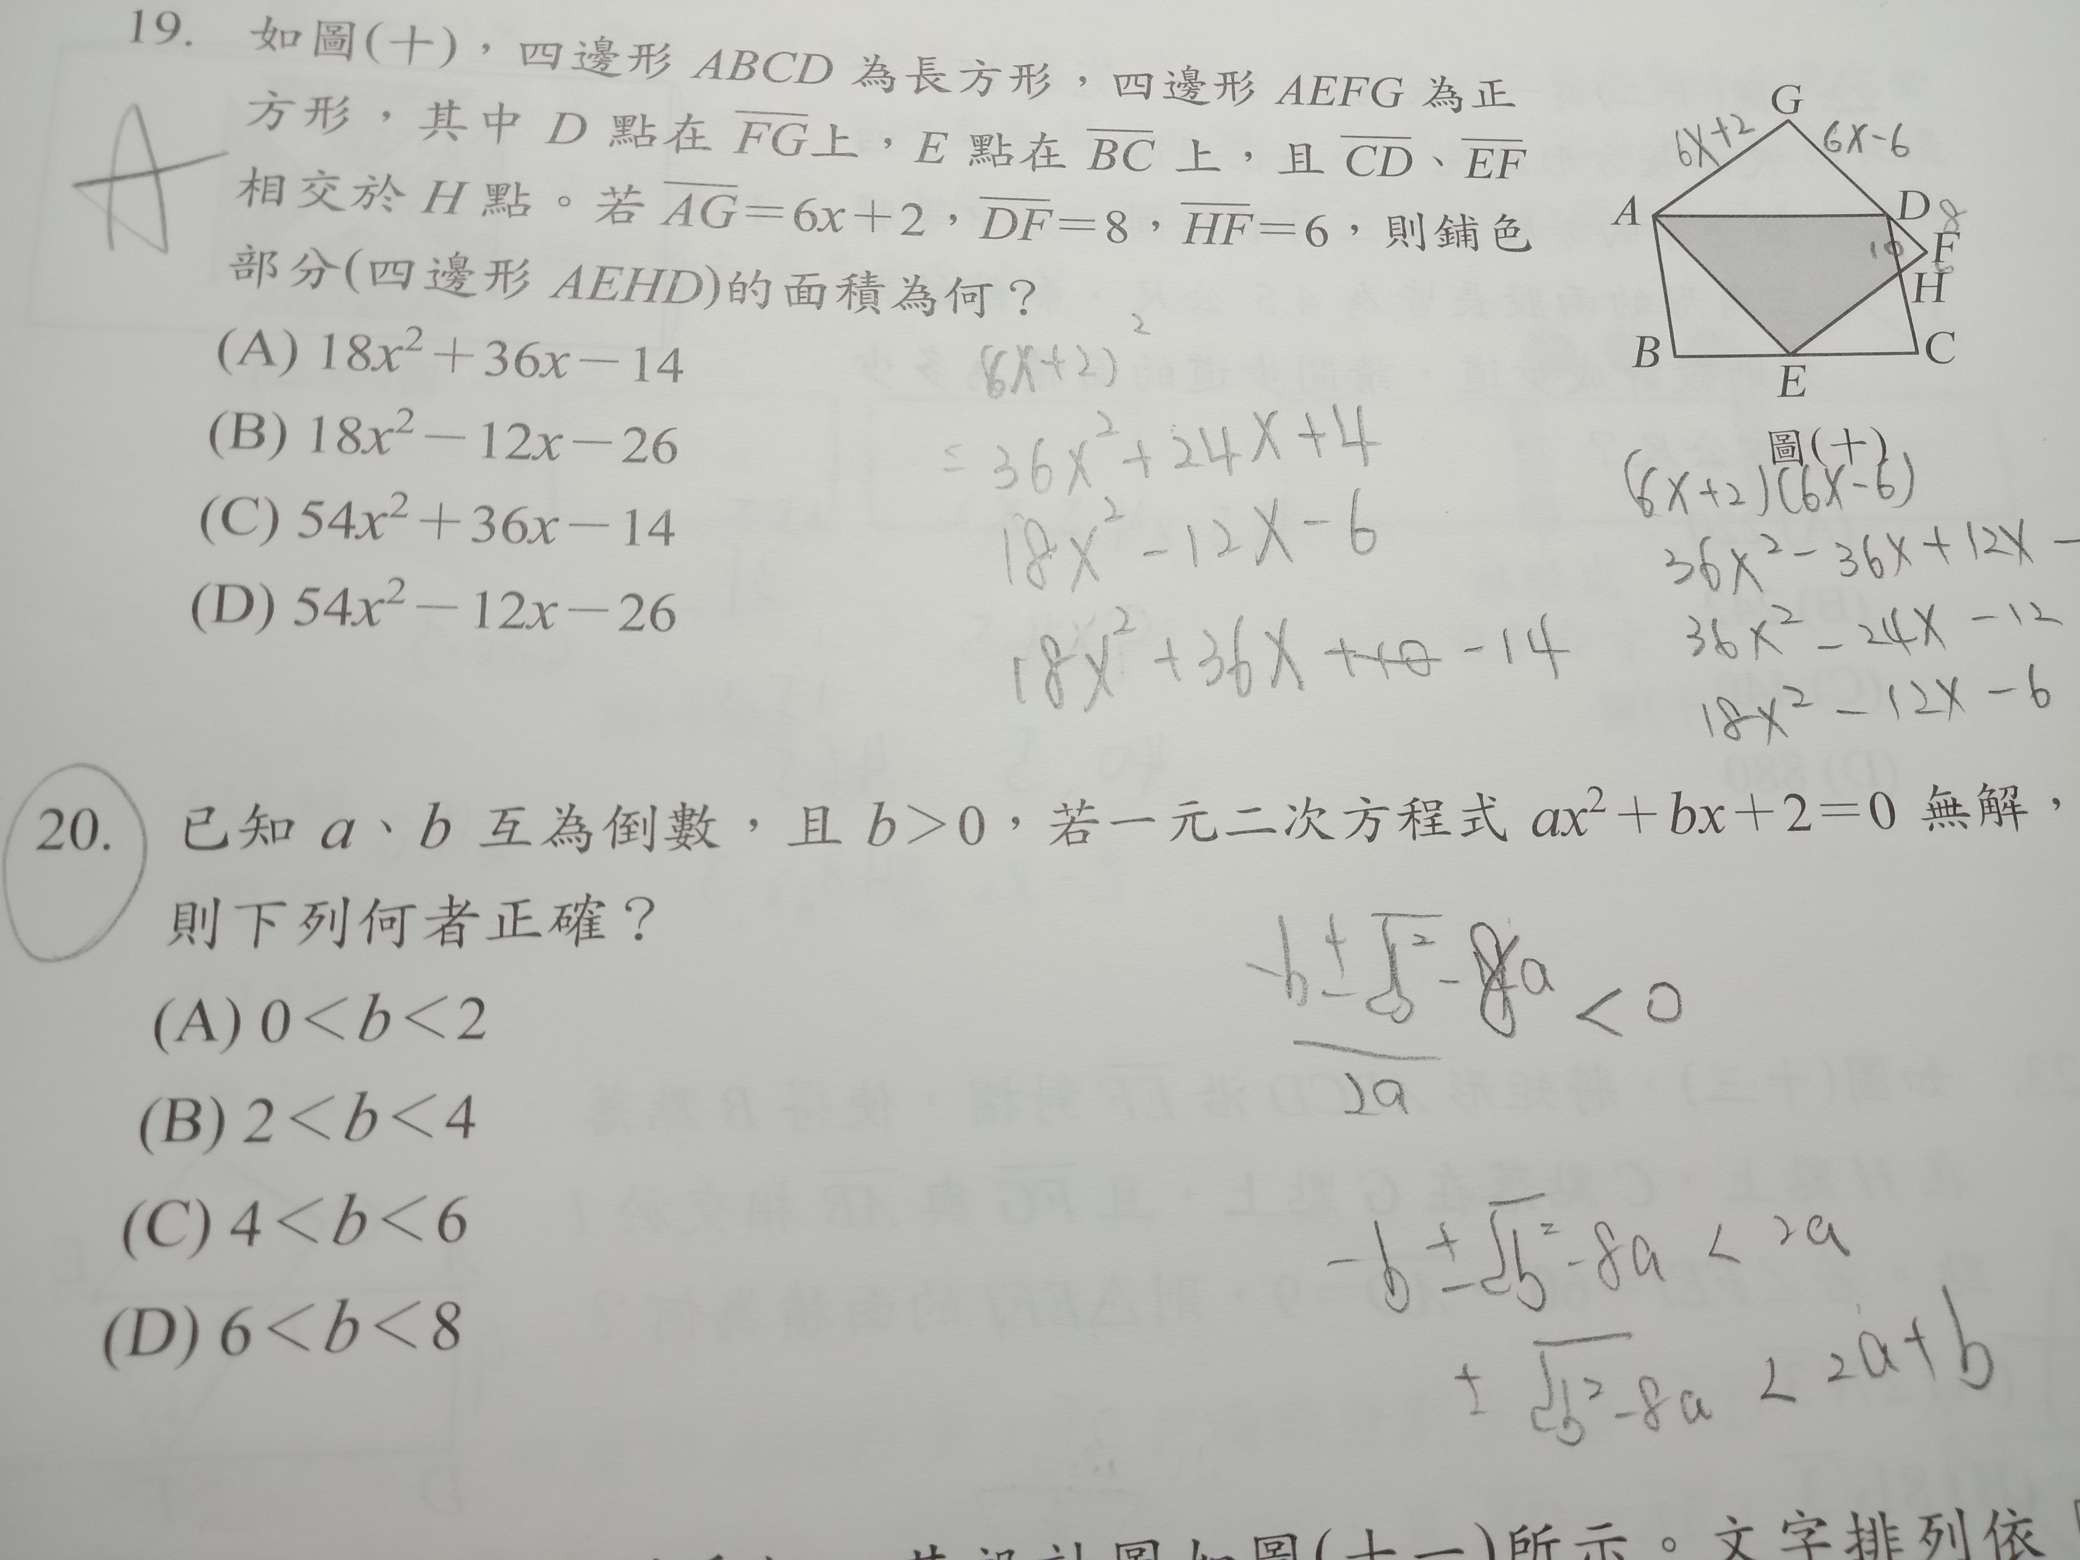 19. 如圖(十)，四邊形 ABCD 為長方形，四邊形 AEFG 為正
方形，其中 D 點在 FG上，E 點在 BC 上，且 CD、EF
相交於 H 點。若 AG=6x+2，DF=8，HF=6，則鋪色
部分(四邊形 AEHD)的面積為何？
(A) 18x²+36x-14
(B) 18x²-12x-26
(C) 54x²+36x-14
(D) 54x²-12x-26
A
G
6x+2
6x-6
A
D 8
10
F
6
H
B
C
E
圖(十)
(6x+2)²
= 36x²+24x+4
18x²-12x-6
18x²+36x+10 -14
(6x+2)(6x-6)
36x²-36x+12x-
36x²-24x-12
18x²-12x-6
20. 已知 a、b 互為倒數，且 b>0，若一元二次方程式 ax²+bx+2=0 無解，
則下列何者正確？
(A) 0<b<2
(B) 2<b<4
(C) 4<b<6
(D) 6<b<8
-b±√b²-8a < 0
2a
-b±√b²-8a < 2a
±√b²-8a < 2a+b
所示。文字排列依